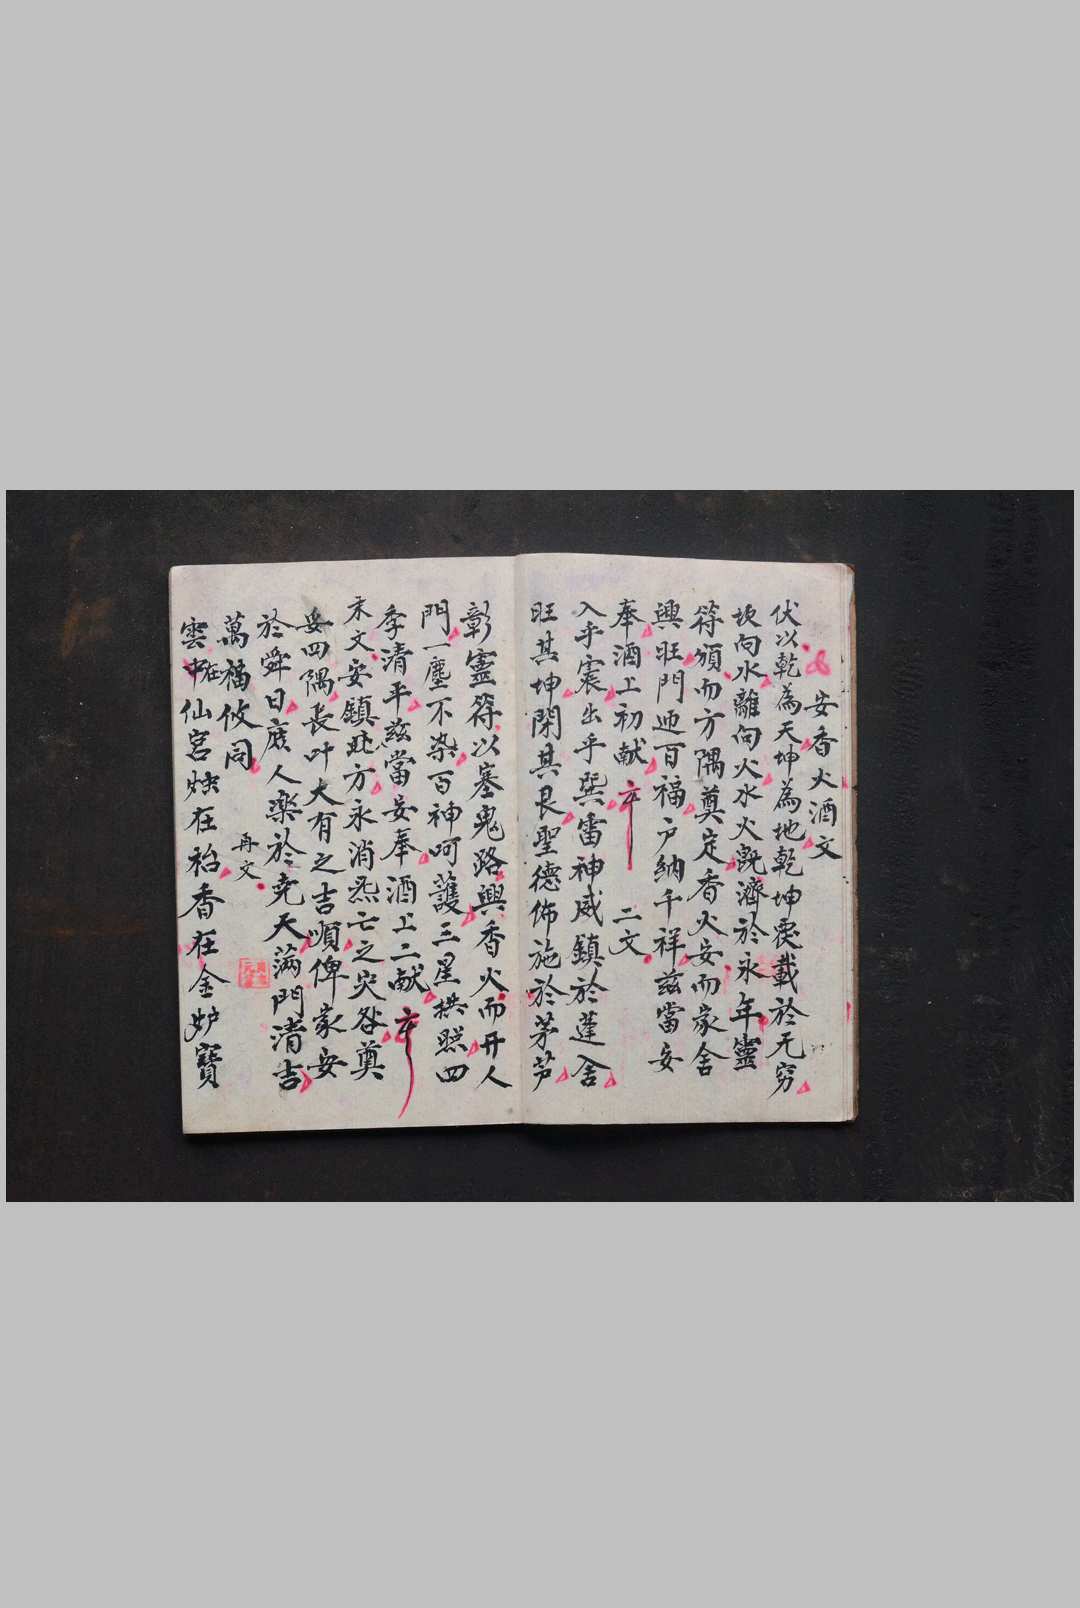 安香火酒文
伏以乾為天坤為地乾坤覆載於无穷
坎向水離向火水火既濟於永年靈
符頒而方隅奠定香火安而家舍
興旺門迎百福户納千祥兹當安
奉酒上初献 二文
入乎震出乎巽雷神威鎮於蓬舍
旺其坤閑其艮聖德佈施於茅芦
彰靈符以塞鬼路興香火而开人
門一塵不染百神呵護三星拱照四
季清平兹當安奉酒上二献
末文安鎮此方永消炁亡之灾咎奠
妥四隅長叶大有之吉順俾家安
於舜日庶人楽於尭天满門清吉
萬福攸同 再文
雲中在仙宮 在 香在金炉寶